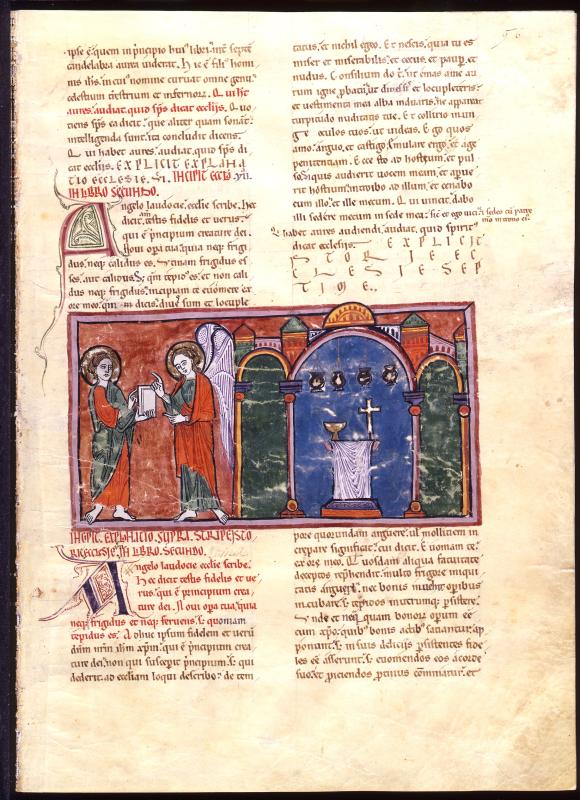 ipse é quem in principio hui' libri int septé
candelabra aurea viderat. hic é fili' homi
nis ihs. in cui' nomine curuat omne genu
celestium terrestrium et infernorū. Qui ht
aures. audiat. quid sp̄s dicat ecclijs. Quo
tiens sp̄s ea dicit. que aliter quam sonat.
intelligenda sunt. ita concludit dicens.
Qui habet aures. audiat. quid sp̄s di
cat ecclijs. EXPLICIT EXPLANA
TIO ECCLESIE. VI. INCIPIT ECCLA. VII.
IN LIBRO SECUNDO.
Angelo laudocie ecclie scribe. hec
dicit. testis fidelis et uerus.
qui é principium creature dei.
Noui opa tua. quia neq; frigi
dus. neq; calidus es. utinam frigidus es
ses. aut calidus. Sʒ qm tepid' es. et non cali
dus neq; frigidus. incipiam te euomere ex
ore meo. qm dicis. diues sum et locuple
tatus. et nichil egeo. Et nescis. quia tu es
miser et miserabilis. et cecus. et paup. et
nudus. Consilium do t'. ut emas a me au
rum igne pbatū. ut diues sis et locupleteris.
et uestimenta mea alba induaris. ne appareat
turpitudo nuditatis tue. Et collirio inun
ge oculos tuos. ut uideas. Ego quos
amo. arguo. et castigo. Emulare ergo. et age
penitentiam. Ecce sto ad hostium. et pul
so. Siquis audierit uocem meam. et apue
rit hostium. introibo ad illum. et cenabo
cum illo. et ille mecum. Qui uincit. dabo
illi sedere mecum in sede mea. sic et ego uici. et sedeo cū patre
meo in trono ei'.
Qui habet aures audiendi. audiat. quid spirit'
dicat ecclesijs. EXPLICIT
STORIE EC
CLESIE SEP
TIME.
INCIPIT. EXPLANATIO. SUPRA. SCRIPTE STO
RIE ECCLESIE. IN LIBRO. SECUNDO.
Angelo laudocie ecclie scribe.
hec dicit testis fidelis et ue
rus. qui é principium crea
ture dei. Noui opa tua. quia
neq; frigidus et neq; feruens. sʒ quoniam
tepidus es. Adhuc ipsum fidelem et uerū
dnm nrm ihm xpm. qui é principium crea
ture dei. non qui suscepit principium. sʒ qui
dederit. ad eccliam loqui describo. de tem
pore quorundam anguere. ul molliciem in
crepare significat. cui dicit. Euomam te
ex ore meo. Quosdam aliqua facultate
deceptos reprehendit. multo frigore iniqui
tatis anguere. nec bonis opibus
incubare. sʒ tepidos utrumq; psistere.
Unde et neq; quam bonoru opum ee
cum xpo. quib' bonis actib' satiantur. ap
ponunt. sʒ in suis delicijs psistentes fide
les ee asserunt. sʒ euomendos eos a corde
suo. et piciendos protinus cominatur. et